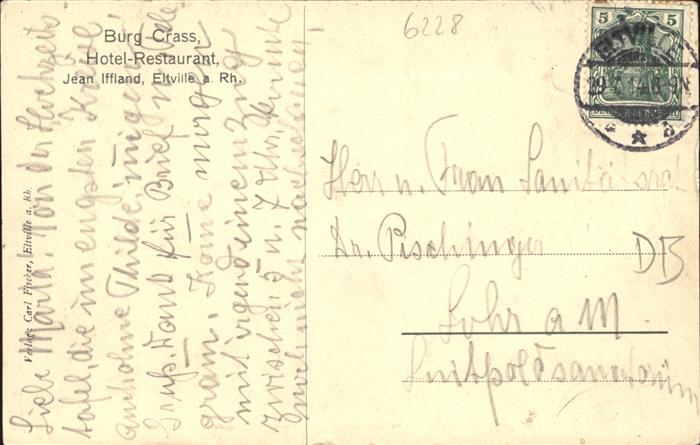 Burg Crass,
Hotel-Restaurant,
Jean Iffland, Eltville a. Rh.
6228
5 5
Verlag: Carl Fischer, Eltville a. Rh.
Liebe Marta! Von der Hochzeits-
tafel, die im engsten Kreise,
auch ohne Thilde, innigen
Gruß. Dank für Brief
gram. Komme morgen
mit irgend einem Zug
zwischen 5 u. 7 Uhr.
Herr u. Frau Sanitätsrat
Dr. Pischinger
DB
Lohr a M
Luitpoldsanatorium